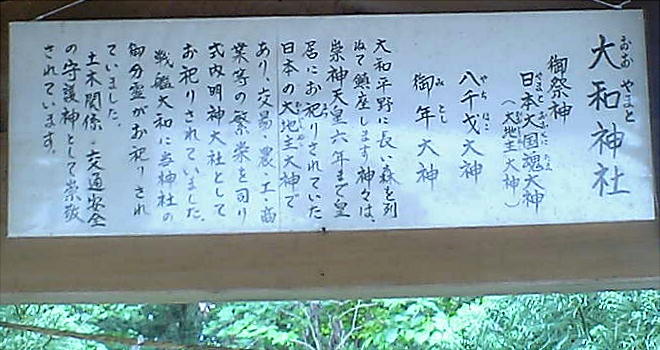 大和神社
おおやまと
御祭神
日本大国魂大神
やまとおおくにたま
（大地主大神）
八千戈大神
やちほこ
御年大神
みとし
大和平野に長い森を列
ねて鎮座します神々は、
崇神天皇六年まで皇
居にお祀りされていた
日本の大地主大神で
あり、交易・農・工・商
業等の繁栄を司り
式内明神大社として
お祀りされていました。
戦艦大和に当神社の
御分霊がお祀りされ
ていました。
土木関係・交通安全
の守護神として崇敬
されています。